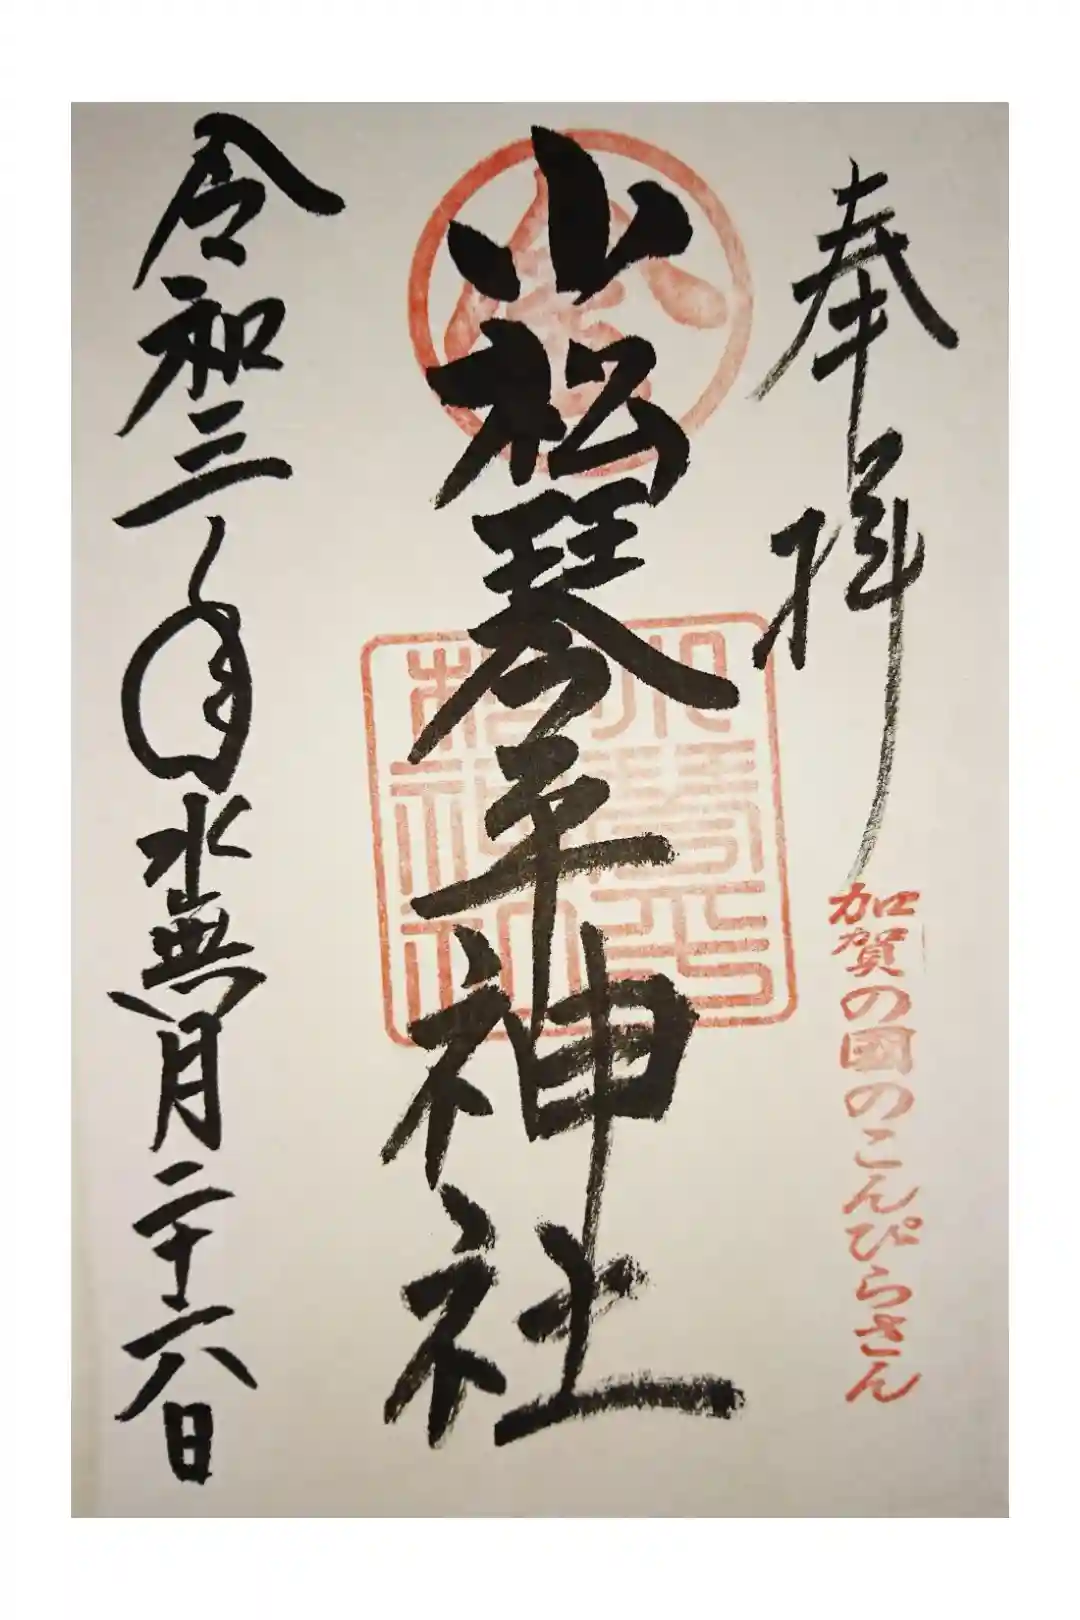 奉拝
加賀の國のこんぴらさん
小松琴平神社
小琴平
松神社
令和三年水無月二十六日